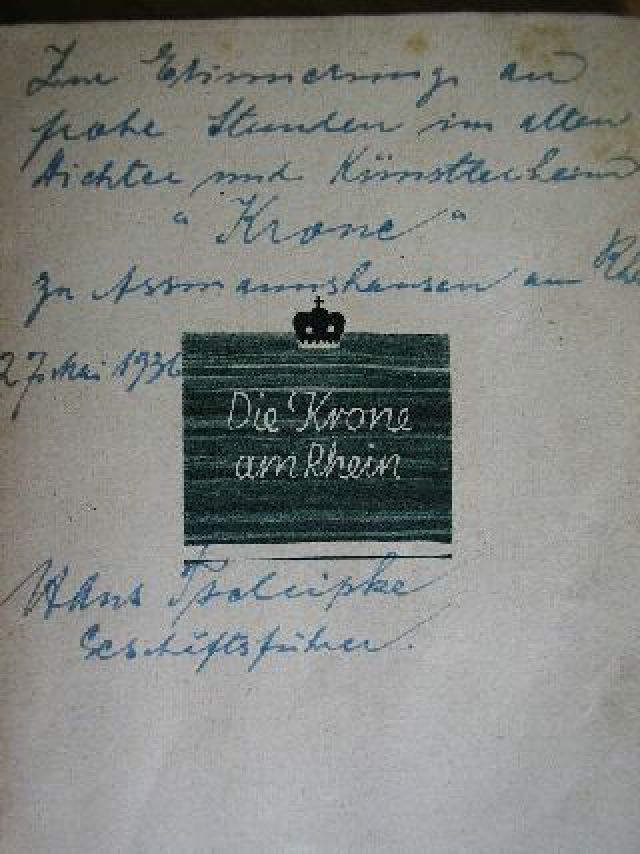 Zur Erinnerung an
frohe Stunden im alten
Dichter und Künstlerheim
"Krone"
zu Assmannshausen am
27. Mai 1936
Die Krone
am Rhein
Hans
Geschäftsführer.